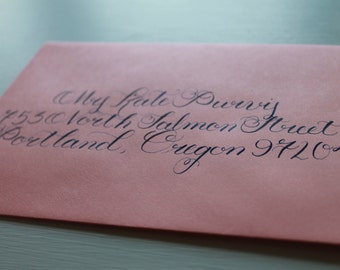 Ms Kate Purvis
753 North Salmon Street
Portland, Oregon 9720